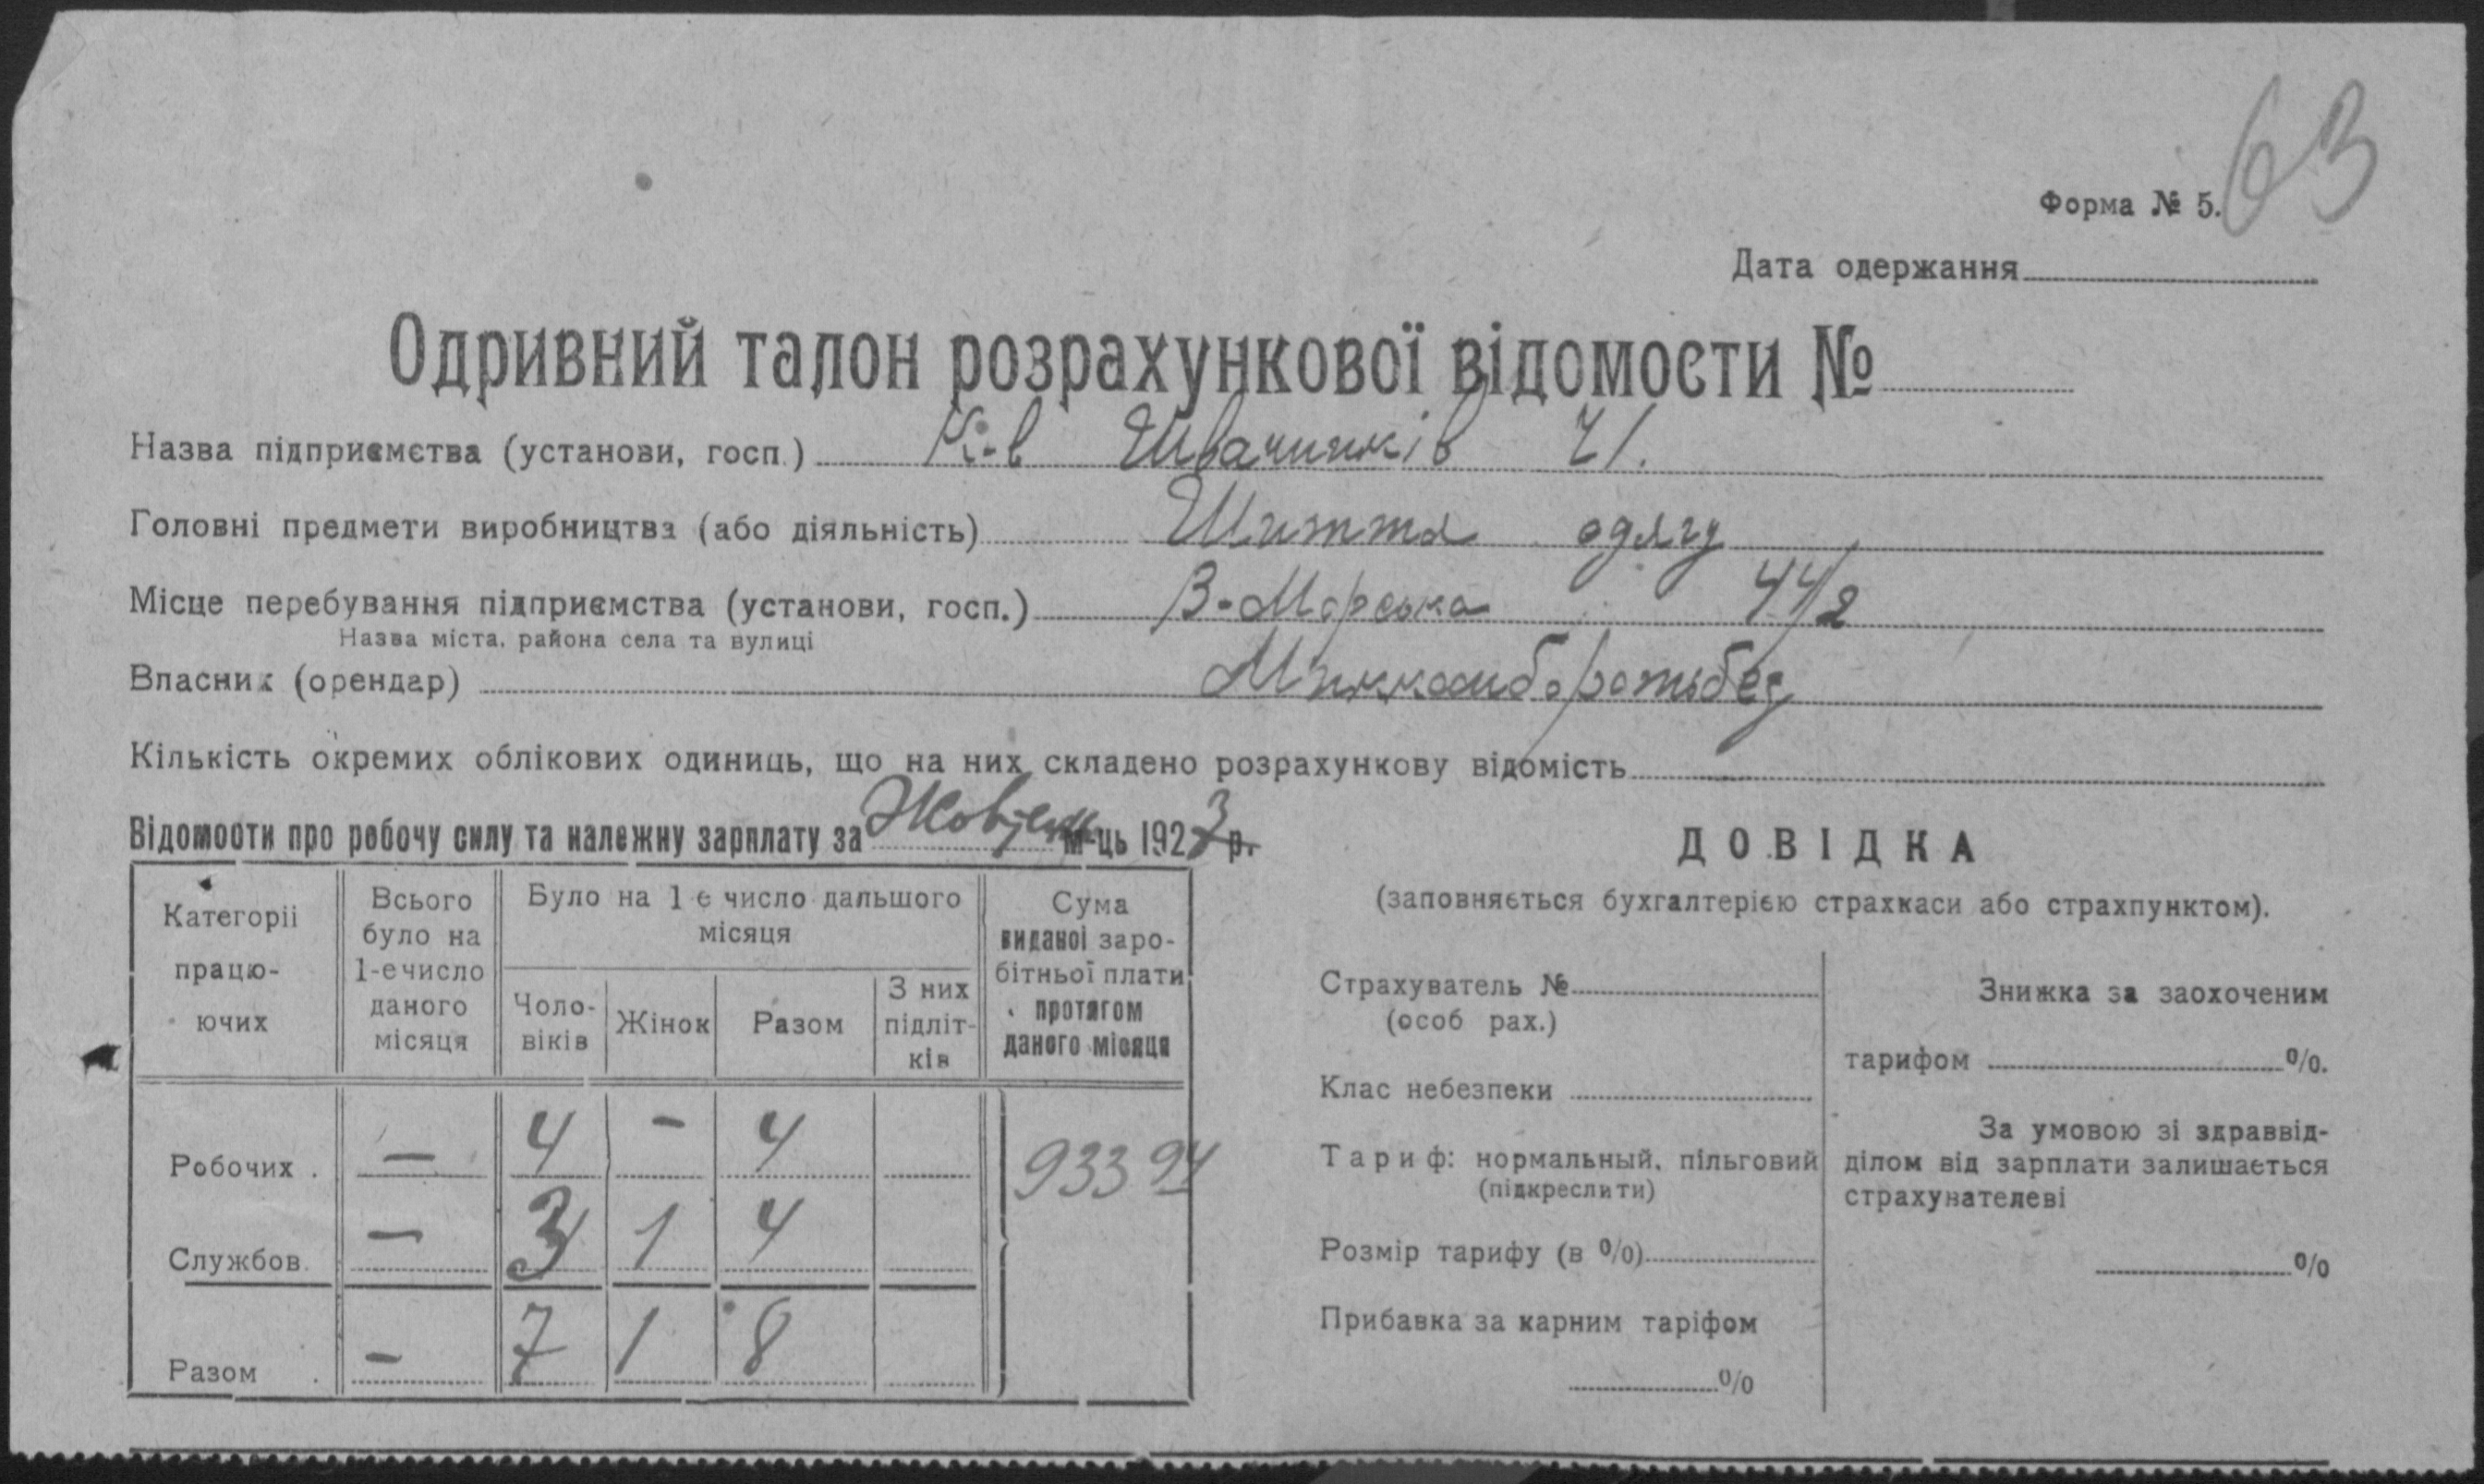 63
Форма № 5.
Дата одержання
Одривний талон розрахункової відомости №
Назва підприємства (установи, госп.) К-в Швачинків Ч1.
Головні предмети виробництва (або діяльність) Шиття одягу
Місце перебування підприємства (установи, госп.) В-Морська 44/2
Назва міста, района села та вулиці
Власник (орендар)
Кількість окремих облікових одиниць, що на них складено розрахункову відомість
Відомости про робочу силу та належну зарплату за Жовтень м-ць 1923 р.
Категорії працю-ючих
Всього було на 1-е число даного місяця
Було на 1-е число дальшого місяця
Чоло-віків
Жінок
Разом
З них підліт-ків
Сума виданої заро-бітньої плати протягом даного місяця
Робочих . — 4 - 4 933 94
Службов. — 3 1 4
Разом . — 7 1 8
ДОВІДКА
(заповняється бухгалтерією страхкаси або страхпунктом).
Страхуватель №
(особ рах.)
Клас небезпеки
Тариф: нормальный, пільговий
(підкреслити)
Розмір тарифу (в %)
Прибавка за карним таріфом
%
Знижка за заохоченим
тарифом %.
За умовою зі здраввід-
ділом від зарплати залишається
страхувателеві
%